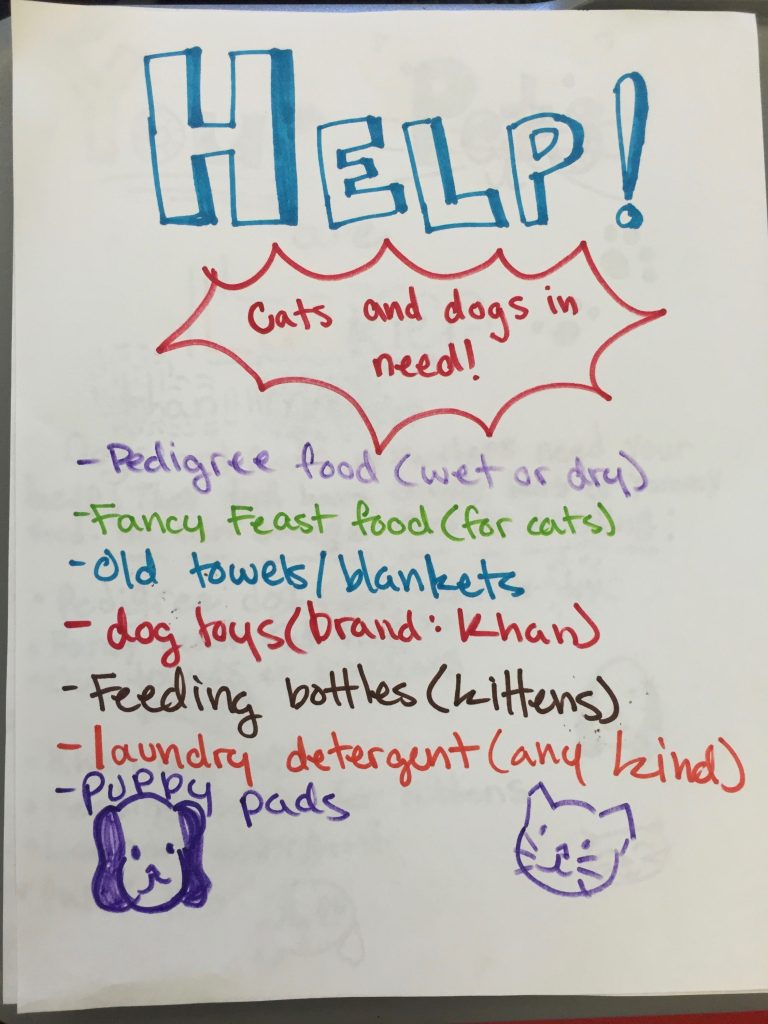 HELP!
Cats and dogs in
need!
- Pedigree food (wet or dry)
- Fancy Feast food (for cats)
- Old towels/blankets
- dog toys (brand: Khan)
- Feeding bottles (kittens)
- laundry detergent (any kind)
- puppy pads